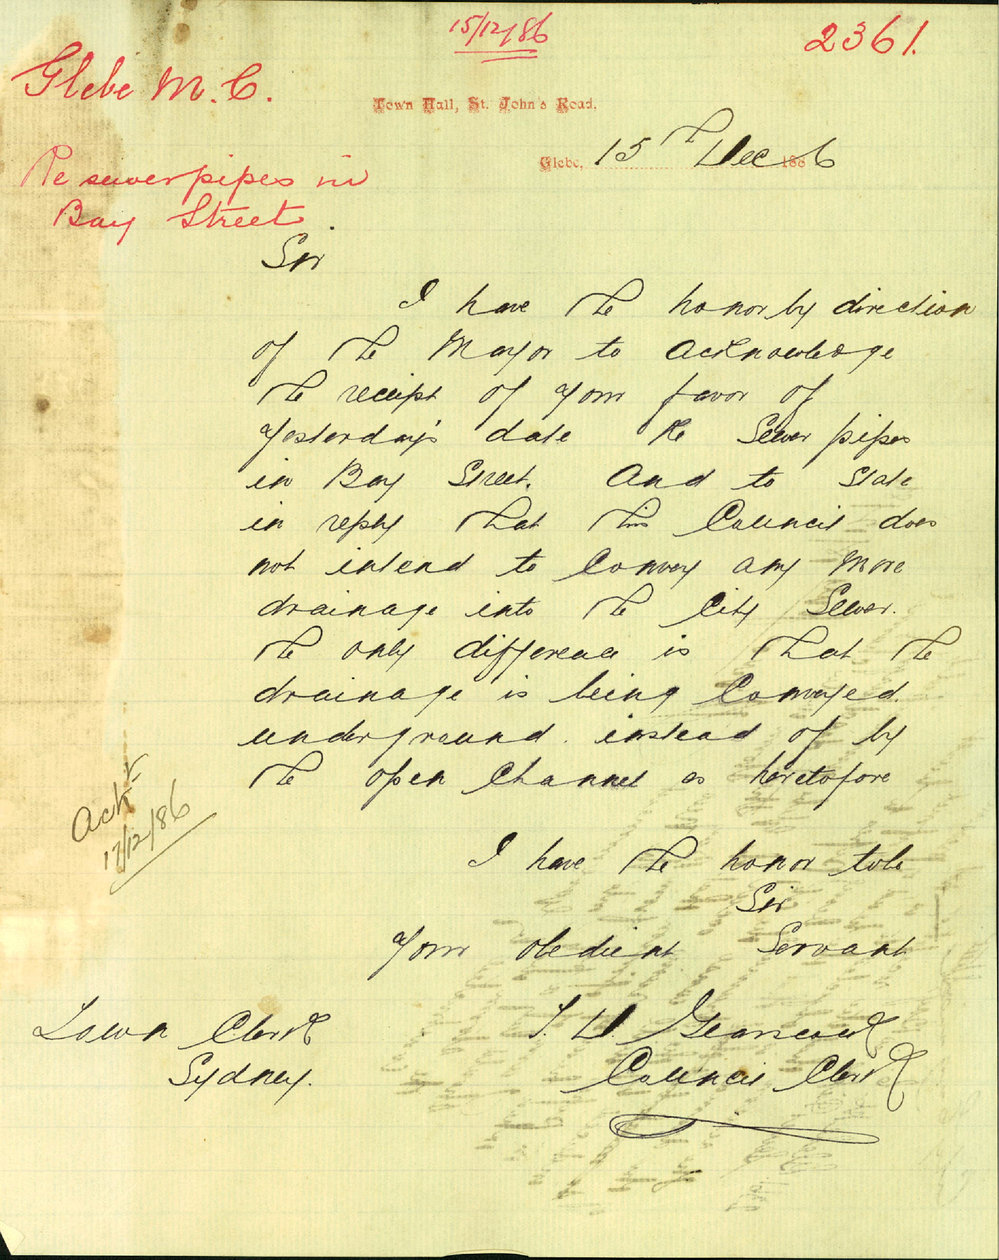 15/12/86
2361.
Glebe M.C.
Town Hall, St. John's Road.
Glebe, 15th Dec 1886
Re sewer pipes in
Bay Street
Sir
I have the honor by direction
of the Mayor to acknowledge
the receipt of your favor of
yesterday's date re Sewer pipes
in Bay Street. And to State
in reply that this Council does
not intend to Convey any more
drainage into the City Sewer.
The only difference is that the
drainage is being Conveyed
underground instead of by
the open Channel as heretofore
Ackd
17/12/86
I have the honor to be
Sir
Your obedient Servant
T. D.
Council Clerk
Town Clerk
Sydney.